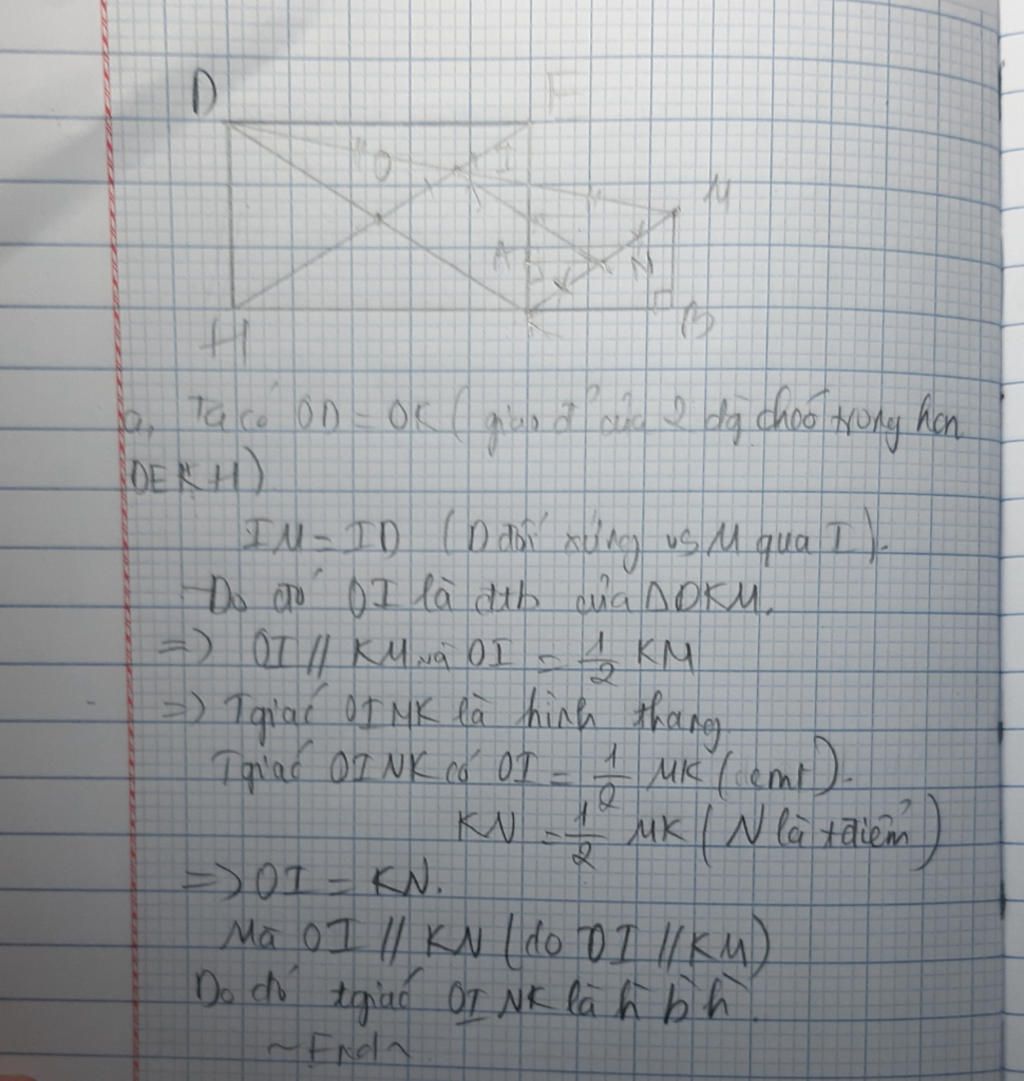 D E
O I M
A N
H K B
a, Ta có OD = OK ( giao đ' của 2 đg chéo trong hcn
DEKH)
IM = ID ( D đối xứng vs M qua I ).
Do đó OI là đtb của ΔDKM.
=> OI // KM và OI = 1/2 KM
=> Tgiác OIMK là hình thang
Tgiác OINK có OI = 1/2 MK (cmt).
KN = 1/2 MK ( N là tđiểm )
=> OI = KN.
Mà OI // KN ( do OI // KM )
Do đó tgiác OINK là h b h.
~ End ~